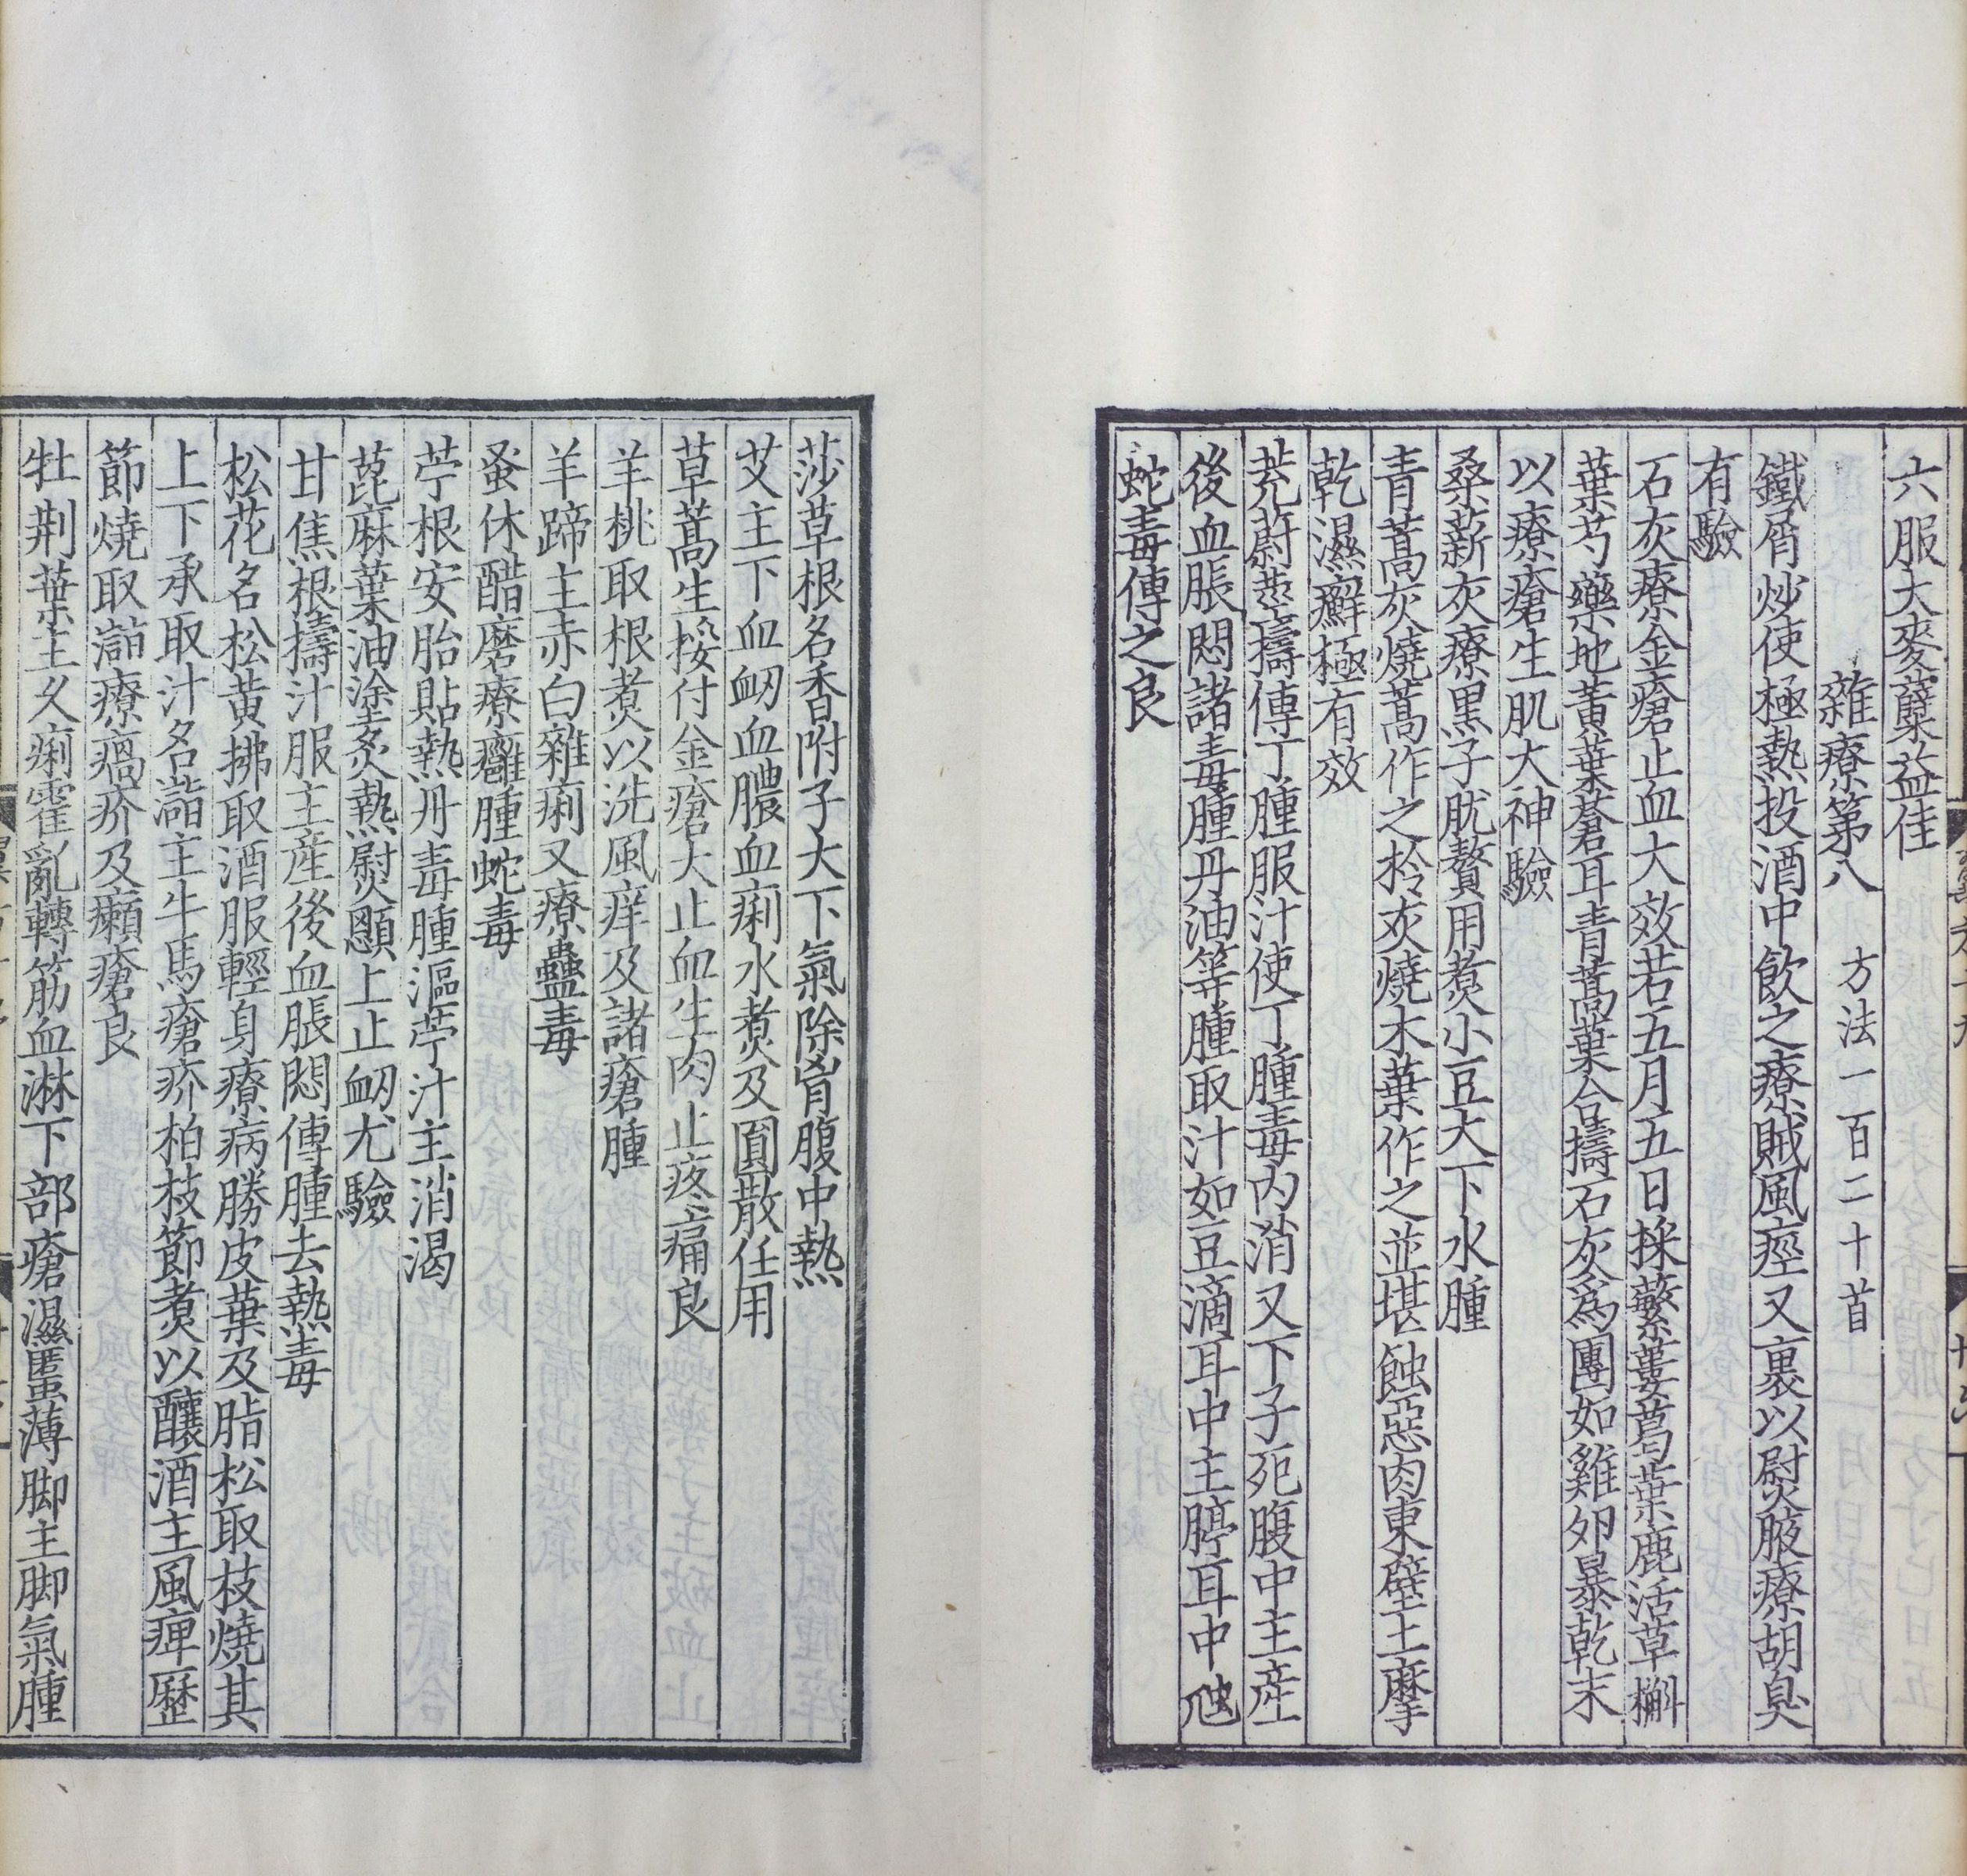 六服大麥蘖益佳
雜療第八 方法一百二十首
鐵屑炒使極熱投酒中飲之療賊風痙又裹以熨腋療胡臭
有驗
石灰療金瘡止血大效若五月五日採蘩蔞葛葉鹿活草槲
葉芍藥地黃葉蒼耳青蒿葉合擣石灰為團如雞卵暴乾末
以療瘡生肌大神驗
桑薪灰療黑子肬贅用煮小豆大下水腫
青蒿灰燒蒿作之柃灰燒木葉作之並堪蝕惡肉東壁土摩
乾濕癬極有效
茺蔚莖擣傅丁腫服汁使丁腫毒內消又下子死腹中主産
後血脹悶諸毒腫丹油等腫取汁如豆滴耳中主聤耳中虺
蛇毒傅之良
莎草根名香附子大下氣除胷腹中熱
艾主下血衂血膿血痢水煮及圓散任用
草蒿生挼付金瘡大止血生肉止疼痛良
羊桃取根煮以洗風痒及諸瘡腫
羊蹄主赤白雜痢又療蠱毒
蚤休醋磨療癰腫蛇毒
苧根安胎貼熱丹毒腫漚苧汁主消渴
萞麻葉油塗炙熱熨顖上止衂尤驗
甘焦根擣汁服主産後血脹悶傅腫去熱毒
松花名松黃拂取酒服輕身療病勝皮葉及脂松取枝燒其
上下承取汁名㵮主牛馬瘡疥柏枝節煮以釀酒主風痺歷
節燒取㵮療瘑疥及癩瘡良
牡荆葉主久痢霍亂轉筋血淋下部瘡濕䘌薄脚主脚氣腫